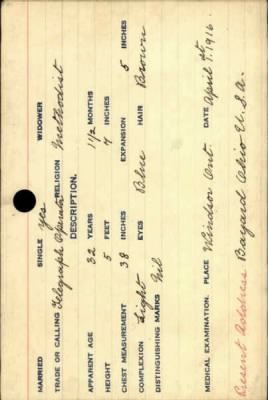 MARRIED SINGLE yes WIDOWER
TRADE OR CALLING Telegraph Operator RELIGION Methodist
DESCRIPTION.
APPARENT AGE 32 YEARS 11½ MONTHS
HEIGHT 5 FEET 7 INCHES
CHEST MEASUREMENT 38 INCHES EXPANSION 5 INCHES
COMPLEXION Light EYES Blue HAIR Brown
DISTINGUISHING MARKS Nil
MEDICAL EXAMINATION. PLACE Windsor Ont. DATE April 1st. 1916
Present Address Bayard Ohio U.S.A.